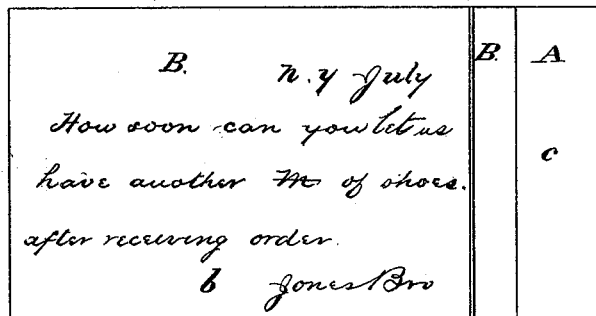 B. B. A
N.Y July
How soon can you let us
c
have another M of shoes.
after receiving order.
b Jones Bro